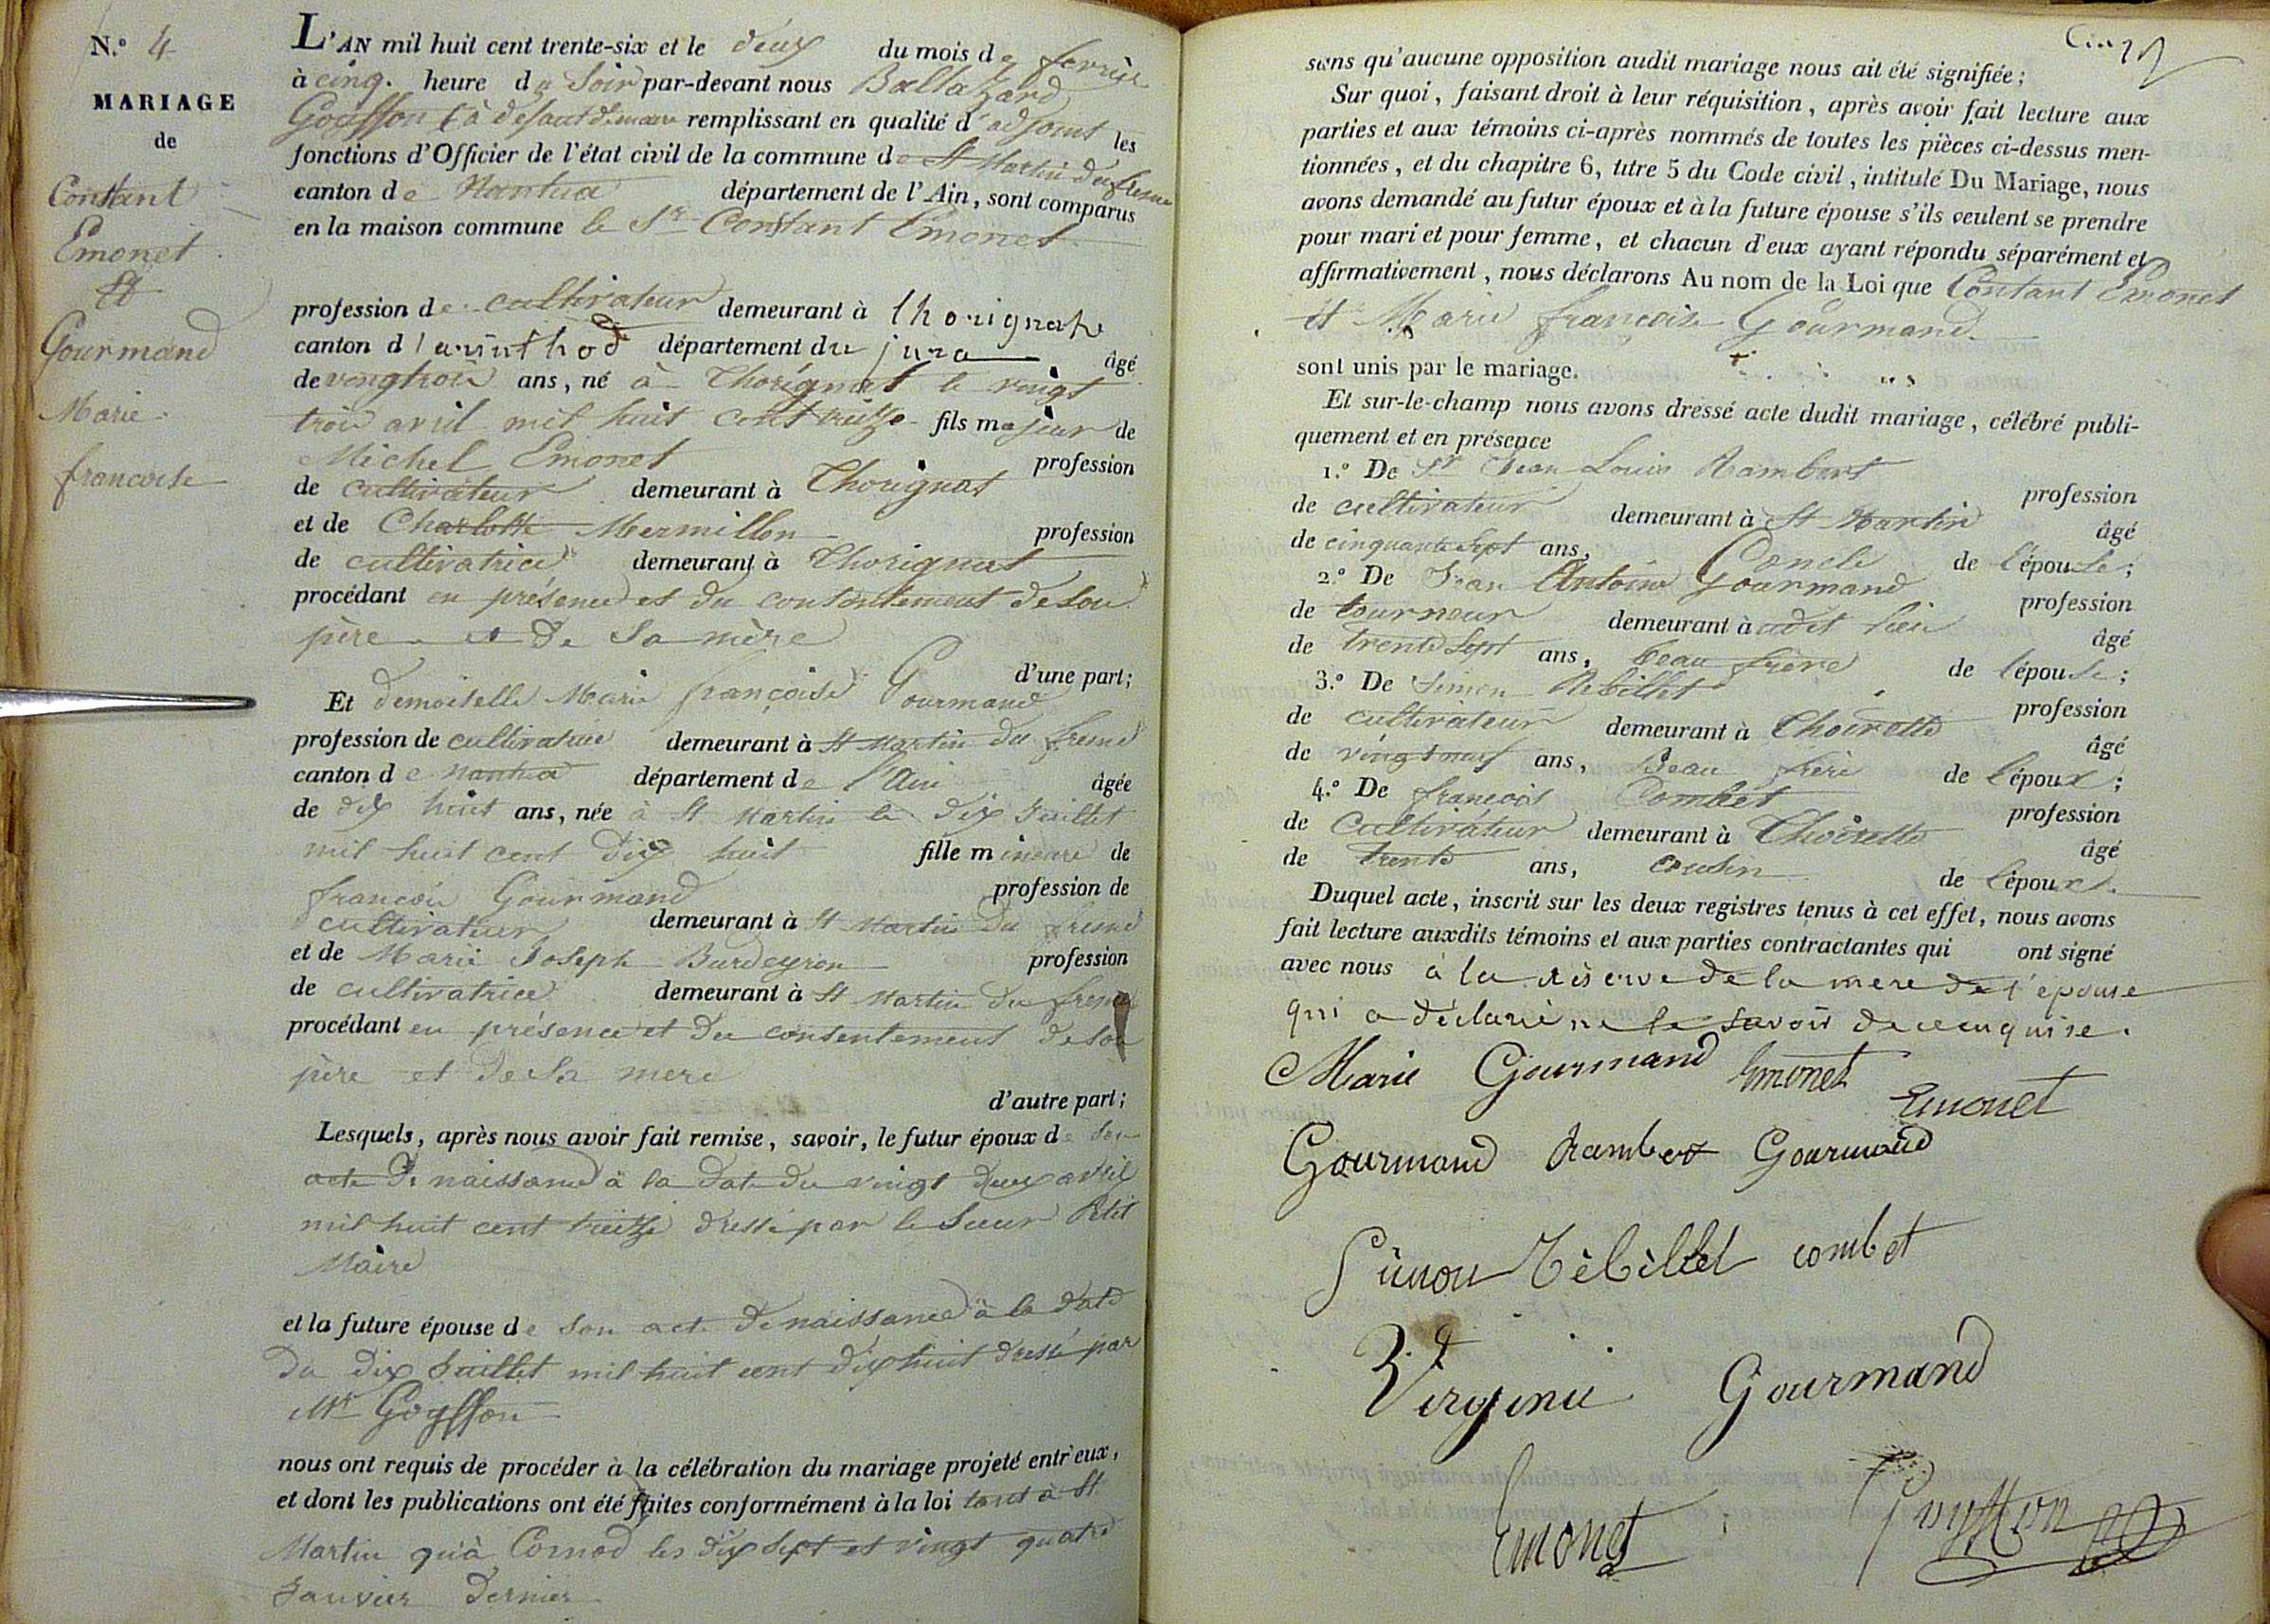 N.° 4
MARIAGE
de
Constant
Emonet
et
Gourmand
Marie
francoise
L'AN mil huit cent trente-six et le deux du mois de fevrier
à cinq heure du Soir par-devant nous Baltazard
Goyffon (à défaut de maire remplissant en qualité d'adjoint les
fonctions d'Officier de l'état civil de la commune de St Martin du fresne
canton de Nantua département de l'Ain, sont comparus
en la maison commune le Sr Constant Emonet
profession de cultivateur demeurant à thorignat
canton d'arinthod département du jura âgé
de vingtrois ans, né à Thorignat le vingt
trois avril mil huit cent treize fils majeur de
Michel Emonet profession
de cultivateur demeurant à Thorignat
et de Charlotte Mermillon profession
de cultivatrice demeurant à Thorignat
procédant en présence et du consentement de son
père et de sa mère
d'une part;
Et demoiselle Marie françoise Gourmand
profession de cultivatrice demeurant à St Martin du fresne
canton de Nantua département de l'Ain âgée
de dix huit ans, née à St Martin le dix Juillet
mil huit cent dix huit fille mineure de
françois Gourmand profession de
cultivateur demeurant à St Martin du fresne
et de Marie Joseph Burdeyron profession
de cultivatrice demeurant à St Martin du fresne
procédant en présence et du consentement de son
père et de sa mere
d'autre part;
Lesquels, après nous avoir fait remise, savoir, le futur époux de son
acte de naissance à la date du vingt deux avril
mil huit cent treize dressé par le Sieur Petit
Maire
et la future épouse de son acte de naissance à la date
du dix Juillet mil huit cent dix huit dressé par
Mr Goyffon
nous ont requis de procéder à la célébration du mariage projeté entr'eux,
et dont les publications ont été faites conformément à la loi tant à St
Martin qu'à Cornod les dix sept et vingt quatre
Janvier dernier
sans qu'aucune opposition audit mariage nous ait été signifiée;
Sur quoi, faisant droit à leur réquisition, après avoir fait lecture aux
parties et aux témoins ci-après nommés de toutes les pièces ci-dessus men-
tionnées, et du chapitre 6, titre 5 du Code civil, intitulé Du Mariage, nous
avons demandé au futur époux et à la future épouse s'ils veulent se prendre
pour mari et pour femme, et chacun d'eux ayant répondu séparément et
affirmativement, nous déclarons Au nom de la Loi que Constant Emonet
et Marie françoise Gourmand
sont unis par le mariage.
Et sur-le-champ nous avons dressé acte dudit mariage, célébré publi-
quement et en présence
1.° De Sr Jean Louis Rambert profession
de cultivateur demeurant à St Martin âgé
de cinquante sept ans, oncle de l'épouse;
2.° De Jean Antoine Gourmand profession
de tourneur demeurant à udit lieu âgé
de trente sept ans, beau frère de lépouse;
3.° De Simon Rebillet profession
de cultivateur demeurant à Thoirette âgé
de vingt neuf ans, Beau frère de l'époux;
4.° De françois Combet profession
de cultivateur demeurant à Thoirette âgé
de trente ans, cousin de l'époux.
Duquel acte, inscrit sur les deux registres tenus à cet effet, nous avons
fait lecture auxdits témoins et aux parties contractantes qui ont signé
avec nous à la réserve de la mere de l'épouse
qui a déclaré ne le savoir de ce enquise.
Marie Gourmand Emonet
Emonet
Gourmand Rambert Gourmand
Simon Rebillet combet
Virginie Gourmand
Emonet Goyffon